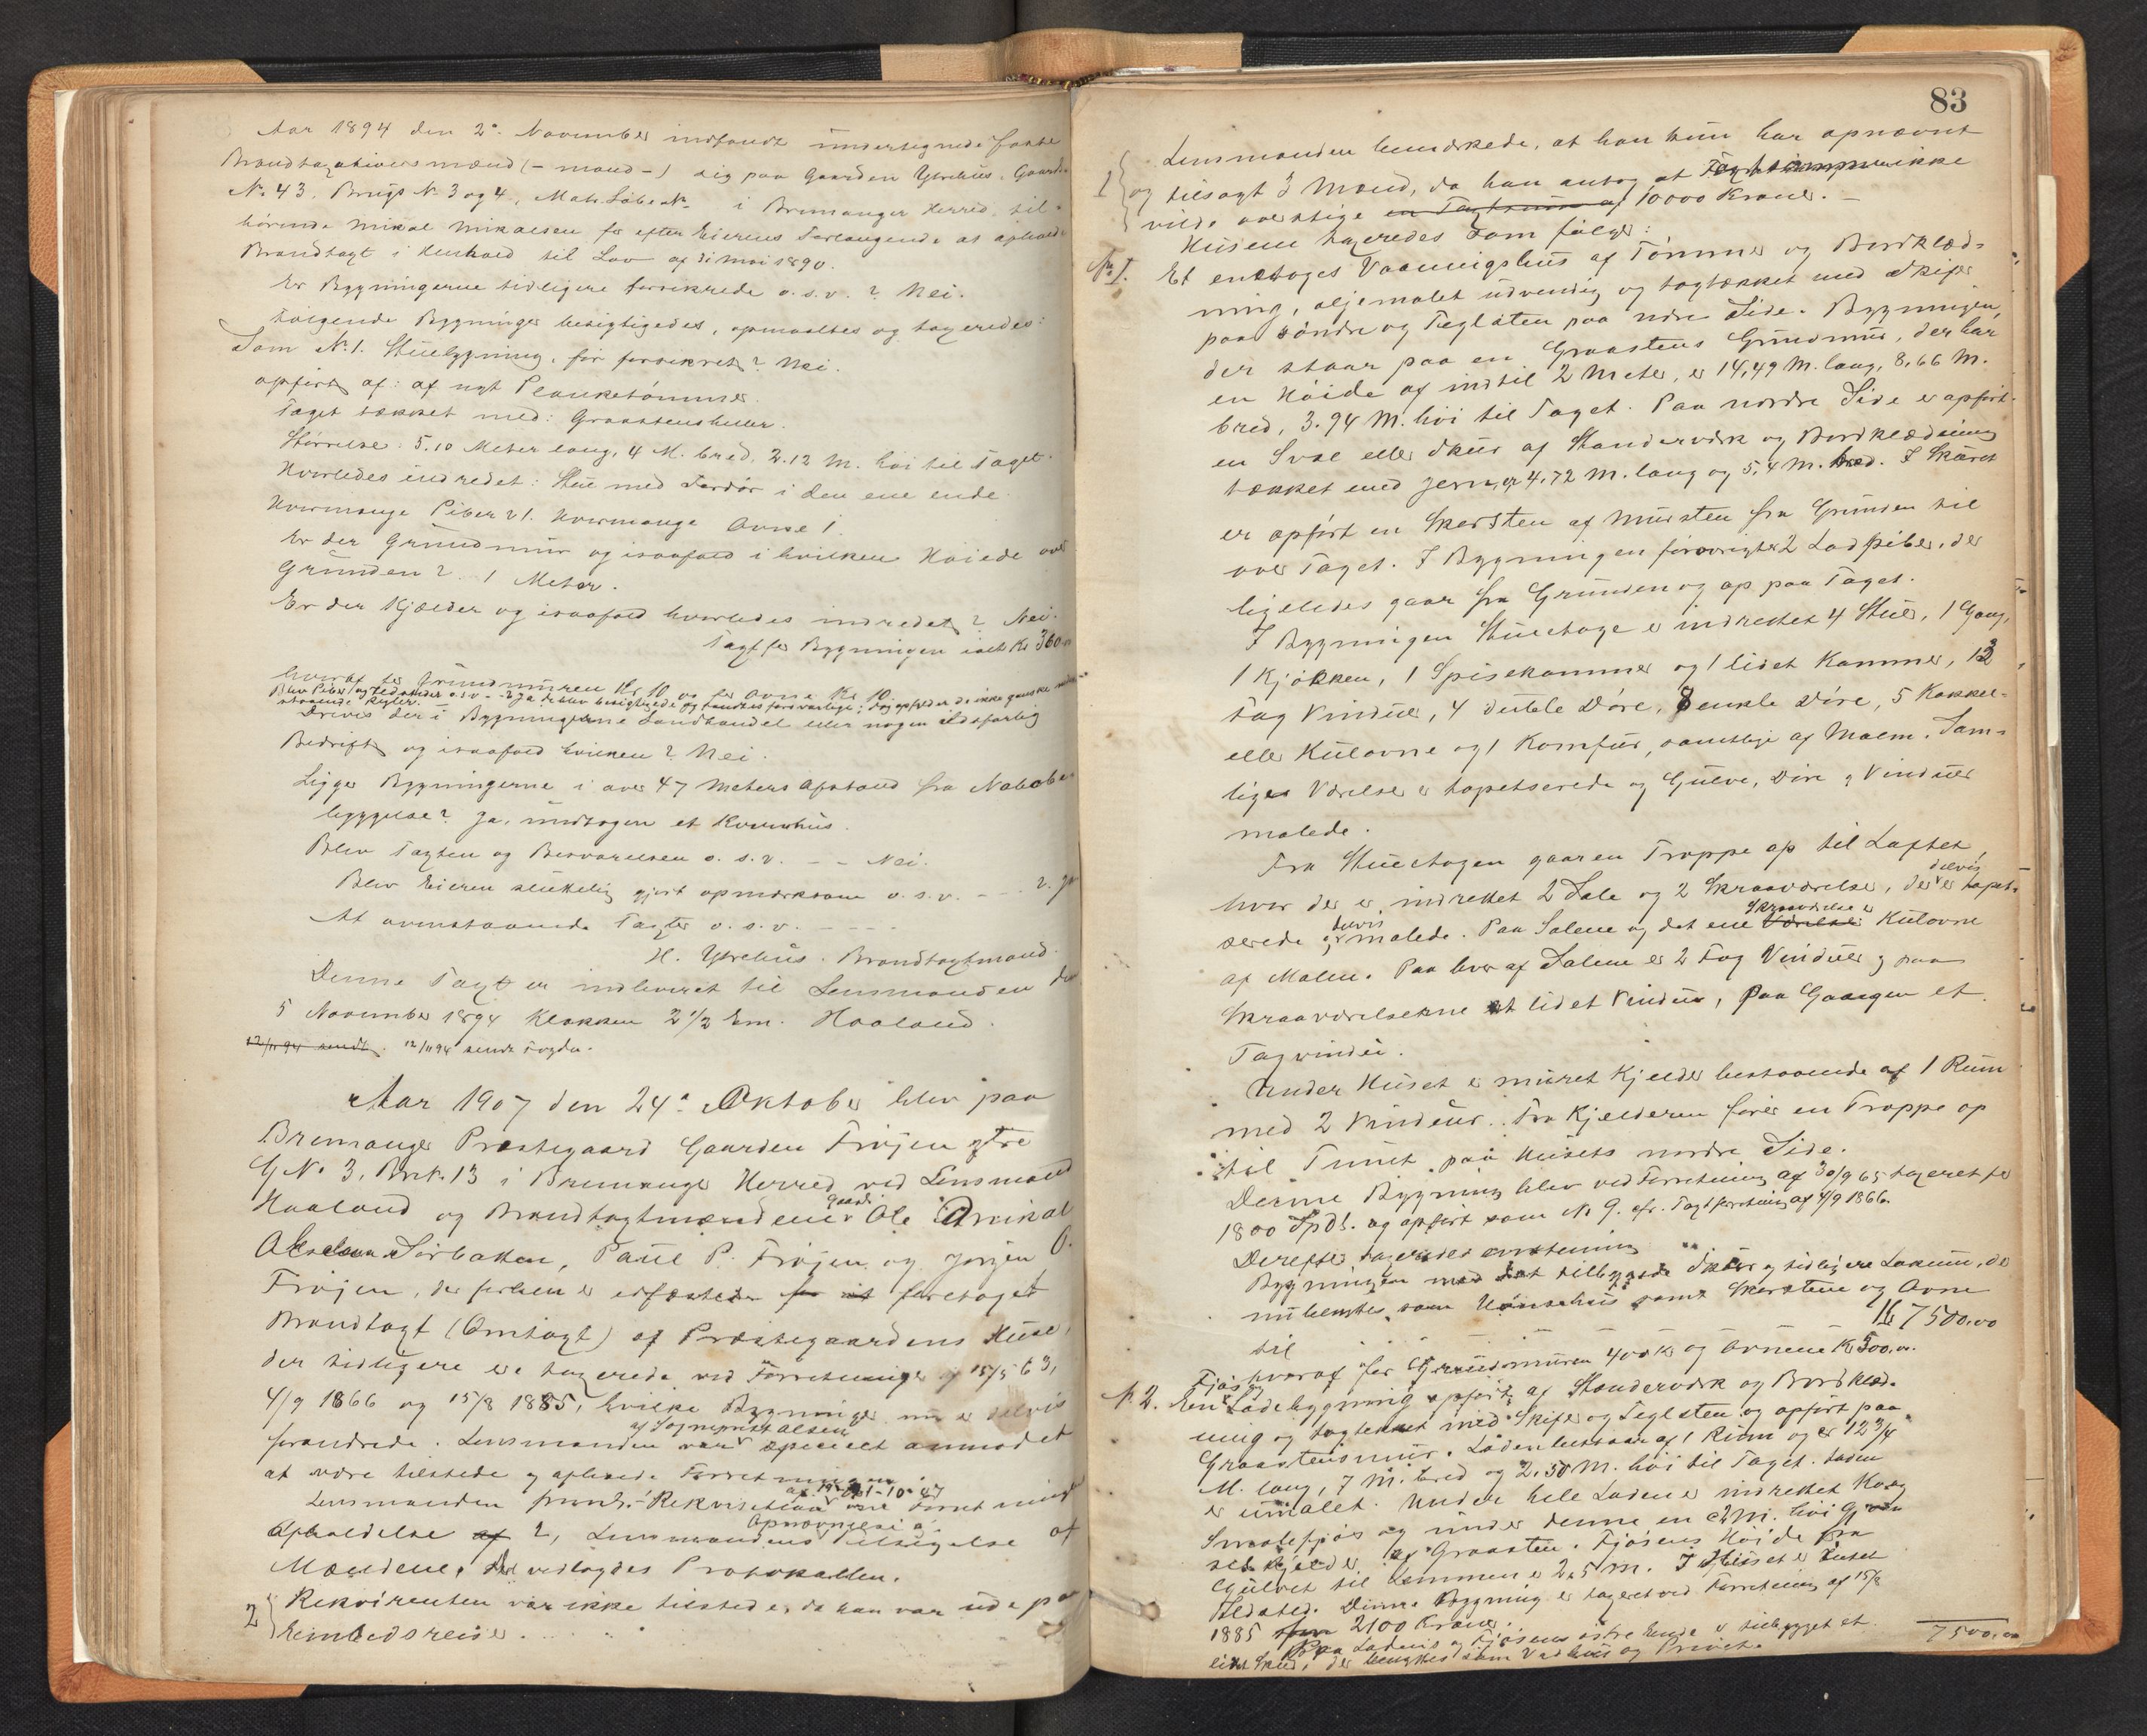 Aar 1894 den 2º. November indfandt undertegnede faste
Brandtaxationsmænd (-mand-) sig paa Gaarden Ytrehus, Gaards
No 43, Brugs No 3 og 4, Matr. Løbe No i Bremanger Herred, til-
hørende Mikal Mikalsen for efter Eierens Forlangende at afholde
Brandtaxt i Henhold til Lov af 31 Mai 1890.
Er Bygningerne tidligere forsikrede o.s.v.? Nei.
Følgende Bygninger besigtigedes, opmaaltes og taxeredes:
Som No 1. Stuebygning, før forsikret? Nei.
opført af: af nyt Planketømmer.
Taget tækket med: Graastensheller.
Størrelse: 5.10 Meter lang, 4 M. bred, 2.12 M. høi til Taget.
Hvorledes indredet: Stue med Fordør i den ene ende.
Hvormange Piber? 1. Hvormange Ovne 1.
Er der Grundmur og isaafald i hvilken Høiede over
Grunden? 1 Meter.
Er der Kjælder og isaafald hvorledes indredet? Nei.
Taxt for Bygningen ialt Kr 360
hvoraf for Grundmuren Kr. 10 og for Ovne Kr. 10.
Blev Piber og Ildsteder o.s.v. - ? Ja de blev besigtigede og fandtes forsvarlige;
Drives der i Bygningerne Landhandel eller nogen ildsfarlig
Bedrift og isaafald hvilken? Nei.
Ligger Bygningerne i over 47 Meters Afstand fra Nabobe-
byggelse? Ja, undtagen et Kvernhus.
Blev Taxten og Besvarelsen o.s.v. - - Nei.
Blev Eieren skikkelig gjort opmærksom o.s.v. - - - ? Ja
At ovenstaaende Taxter o.s.v. - - - -
H. Ytrehus. Brandtaxtmand.
Denne Taxt er indleveret til Lensmanden den
5 November 1894 Klokken 2 1/2 Em. Haaland.
12/11 94 sendt. 12/11 94 sendt Fogden.
Aar 1907 den 24º Oktober blev paa
Bremanger Præstegaard Gaarden Frøjen ytre
G No 3, Brk. 13 i Bremanger Herred ved Lensmand
Haaland og Brandtaxtmændene Ole
Sørbakken, Paul P. Frøjen og Jørgen O.
Frøjen, der forhen er edfæstede foretaget
Brandtaxt (Omtaxt) af Præstegaardens Huse,
der tidligere er taxerede ved Forretninger af 15/5 63,
4/9 1866 og 15/8 1885, hvilke Bygninger nu er delvis
af Sogneprest Olsen
forandrede. Lensmanden var specielt anmodet
at være tilstede og afholde Forretningen
Lensmanden freml. 1 Rekvisition om Forretningens
Opnævnelse og
Afholdelse af 2, Lensmandens Tilsigelse af
Mændene, der vedlagdes Protokollen.
2 Rekvirenten var ikke tilstede, da han var ude paa
Embedsreise.
83
1 Lensmanden bemærkede, at han kun har opnævnt
og tilsagt 3 Mænd, da han antog at Taxtsummen ikke
vilde overstige en Taxtsum af 10000 Kroner. -
Husene taxeredes som følger:
No 1. Et enetages Vaaningshus af Tømmer og Bordklæd-
ning, oljemalet udvendig og tagtækket med Skifer
paa søndre og Teglsten paa ndre Side. Bygningen,
der staar paa en Graastens Grundmur, der har
en Høide af indtil 2 Meter, er 14,49 M. lang, 8,66 M.
bred, 3.94 M. høi til Taget. Paa nordre Side er opført
en Sval eller Skur af Standerværk og Bordklædning
tækket med Jern, er 4,72 M. lang og 5,4 M. bred. I Skuret
er opført en Skorsten af Mursten fra Grunden til
over Taget. I Bygningen forøvrigt er 2 Lodpiber, der
ligeledes gaar fra Grunden og op paa Taget.
I Bygningen Stueetage er indrettet 4 Stuer, 1 Gang,
1 Kjøkken, 1 Spisekammer og 1 lidet Kammer, 13
fag Vinduer, 4 dubble Døre, 8 enkle Døre, 5 Kakkel-
eller Kulovne og 1 Komfur, samtlige af Malm. Sam-
lige Værelser er tapetserede og Gulve, Døre og Vinduer
malede.
Fra Stueetagen gaar en Trappe op til Loftet,
delvis
hvor der er indrettet 2 Sale og 2 Skraaværelser, der er tapet-
delvis Skraaværelse er
serede og malede. Paa Salene og det ene Værelse Kulovne
af Malm. Paa hver af Salene er 2 Fag Vinduer og paa
Skraaværelserne et lidet Vindue, paa Gangen et
Tagvindu.
Under Huset er muret Kjelder bestaaende af 1 Rum
med 2 Vinduer. Fra Kjelderen fører en Trappe op
til Tunet paa Husets nordre Side.
Denne Bygning blev ved Forretning af 30/9 65 taxeret for
1800 Spdl. og opført som No 9. cfr. Taxtforretning af 4/9 1866.
Derefter taxeredes
Bygningen med det tilbyggede Skur og tidligere Lokum, der
nu benyttes som Hønsehus samt Skorstene og Ovne
til - - - - - - Kr 7500.00
hvoraf for Grundmuren 400 Kr og Ovnene Kr 300.00.
Fjøs og
No 2. En Ladebygning opført af Stænderværk og Bordklæd-
ning og tagtækket med Skifer og Teglsten og opført paa
Graastensmur. Laden bestaar af 1 Rum og er 12 3/4
M. lang, 7 M. bred og 2.50 M. høi til Taget. Laden
er umalet. Under hele Laden er indrettet Ko og
Smalefjøs og under denne en 2 M. høi Gjød-
selkjelder af Graasten. Fjøsens Høide fra
Gulvet til Lemmen er 2,5 M. I Huset er intet
Ildsted. Denne Bygning er taxeret ved Forretning af 15/8
1885 for 2100 Kroner.
Paa Ladens og Fjøsens østre Ende er tilbygget et
lidet Skur, der benyttes som Vedhus og Privet.
7500.00